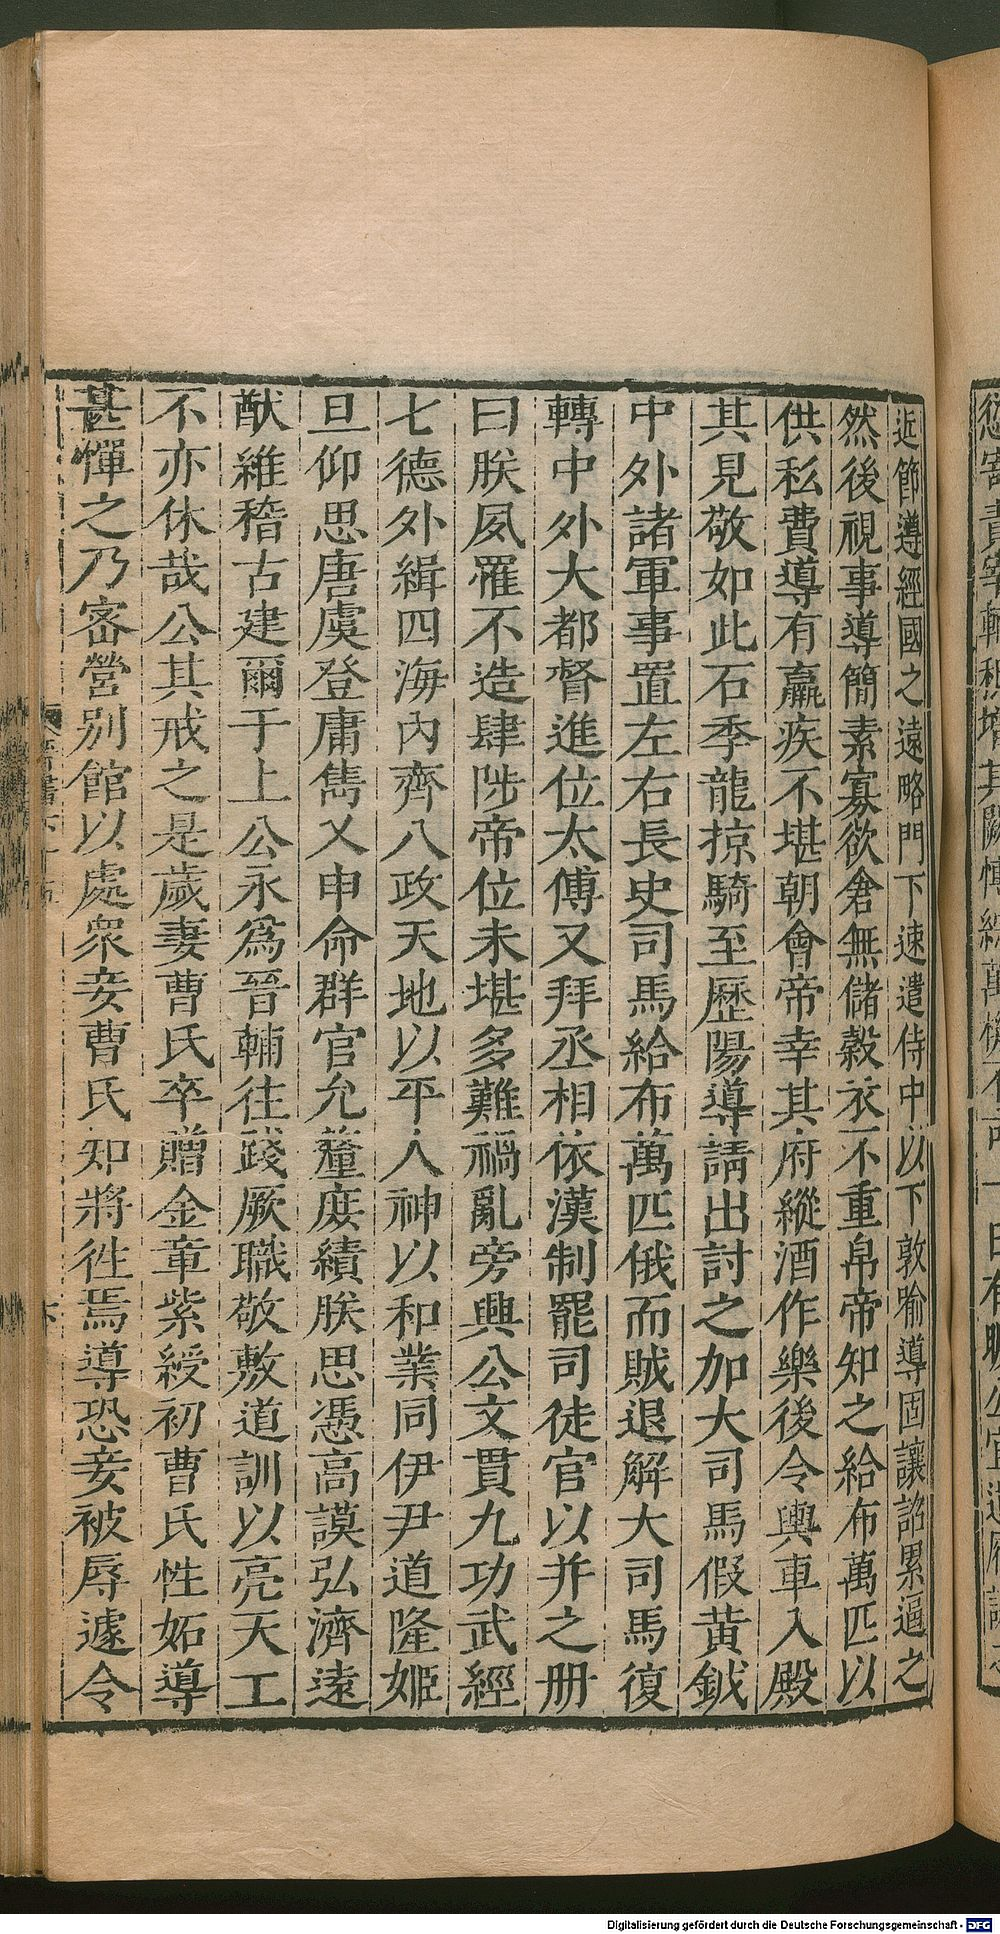 近節遵經國之遠略門下速遣侍中以下敦喻導固讓詔累逼之
然後視事導簡素寡欲倉無儲穀衣不重帛帝知之給布萬匹以
供私費導有羸疾不堪朝會帝幸其府縱酒作樂後令輿車入殿
其見敬如此石季龍掠騎至歷陽導請出討之加大司馬假黃鉞
中外諸軍事置左右長史司馬給布萬匹俄而賊退解大司馬復
轉中外大都督進位太傅又拜丞相依漢制罷司徒官以并之冊
曰朕夙罹不造肆陟帝位未堪多難禍亂旁興公文貫九功武經
七德外緝四海內齊八政天地以平人神以和業同伊尹道隆姬
旦仰思唐虞登庸雋乂申命群官允釐庶績朕思憑高謨弘濟遠
猷維稽古建爾于上公永爲晉輔往踐厥職敬敷道訓以亮天工
不亦休哉公其戒之是歲妻曹氏卒贈金章紫綬初曹氏性妬導
甚憚之乃密營別館以處衆妾曹氏知將徃焉導恐妾被辱遽令
Digitalisierung gefördert durch die Deutsche Forschungsgemeinschaft - DFG